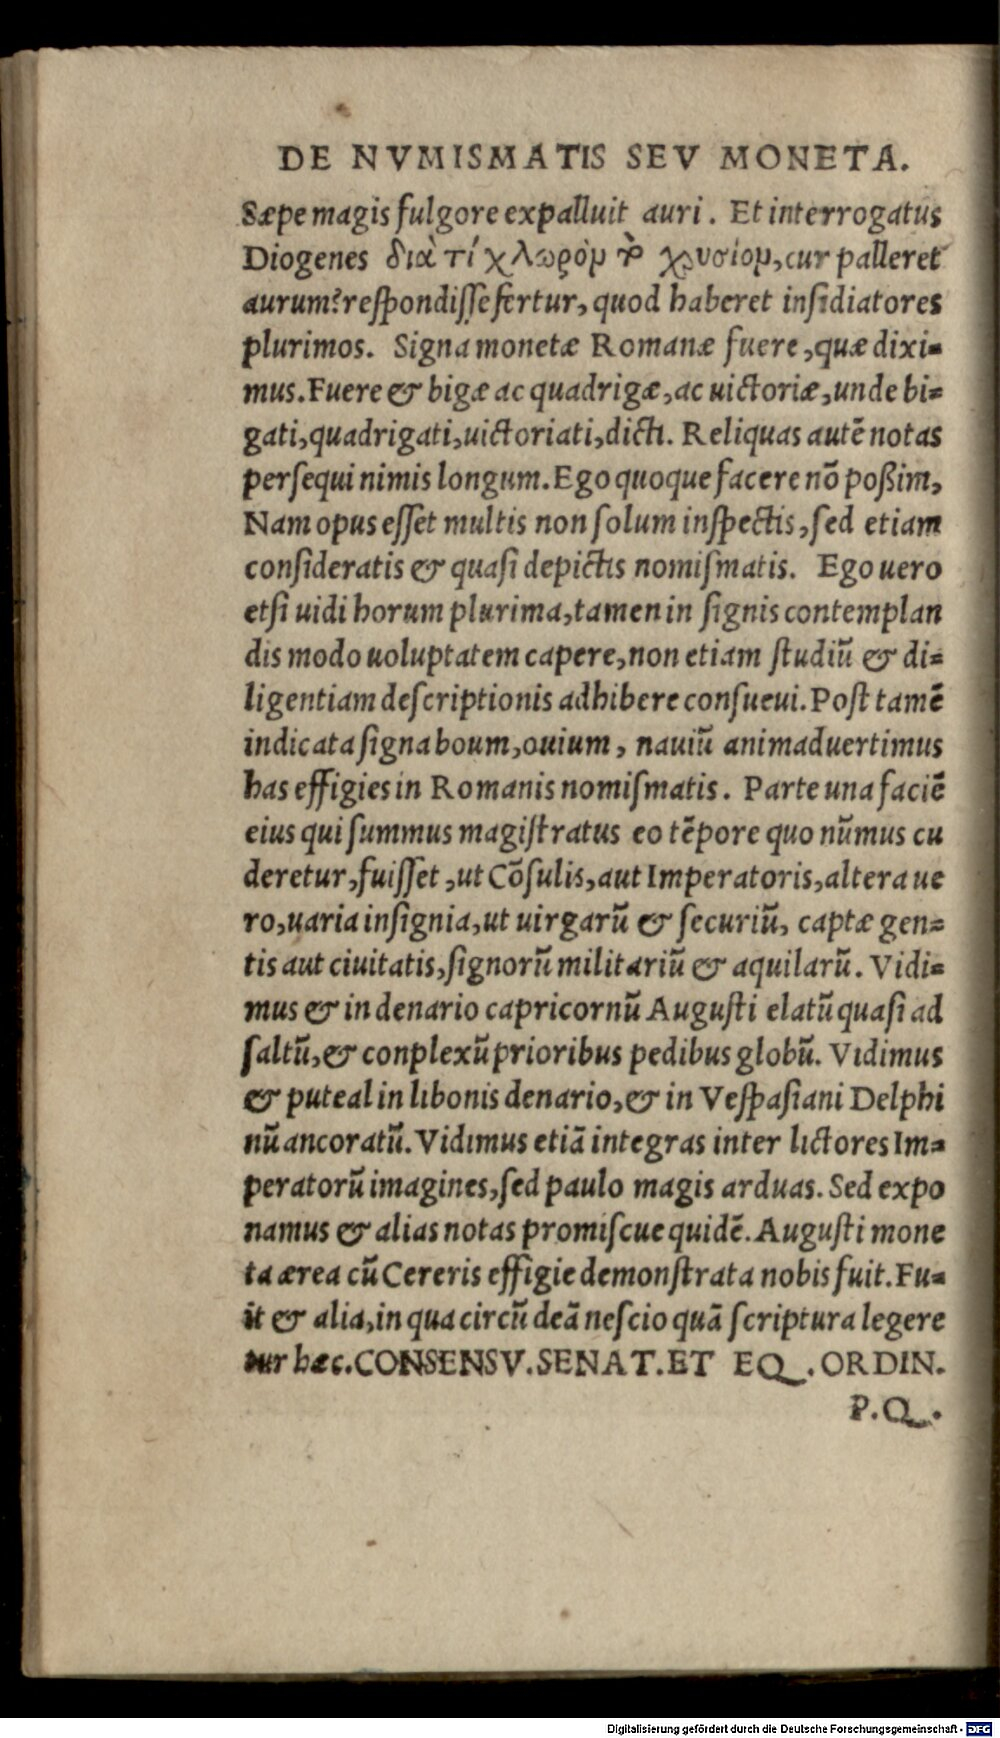 DE NVMISMATIS SEV MONETA.
Sæpe magis fulgore expalluit auri. Et interrogatus
Diogenes διὰ τί χλωρὸν τὸ χρυσίον, cur palleret
aurum? respondisse fertur, quod haberet insidiatores
plurimos. Signa monetæ Romanæ fuere, quæ dixi-
mus. Fuere & bigæ ac quadrigæ, ac uictoriæ, unde bi-
gati, quadrigati, uictoriati, dicti. Reliquas autē notas
persequi nimis longum. Ego quoque facere nō poßim,
Nam opus esset multis non solum inspectis, sed etiam
consideratis & quasi depictis nomismatis. Ego uero
etsi uidi horum plurima, tamen in signis contemplan
dis modo uoluptatem capere, non etiam studiū & di-
ligentiam descriptionis adhibere consueui. Post tamē
indicata signa boum, ouium, nauiū animaduertimus
has effigies in Romanis nomismatis. Parte una faciē
eius qui summus magistratus eo tēpore quo nūmus cu
deretur, fuisset, ut Cōsulis, aut Imperatoris, altera ue
ro, uaria insignia, ut uirgarū & securiū, captæ gen-
tis aut ciuitatis, signorū militariū & aquilarū. Vidi-
mus & in denario capricornū Augusti elatū quasi ad
saltū, & conplexū prioribus pedibus globū. Vidimus
& puteal in libonis denario, & in Vespasiani Delphi
nū ancoratū. Vidimus etiā integras inter lictores Im-
peratorū imagines, sed paulo magis arduas. Sed expo
namus & alias notas promiscue quidē. Augusti mone
ta ærea cū Cereris effigie demonstrata nobis fuit. Fu-
it & alia, in qua circū deā nescio quā scriptura legere
tur hæc. CONSENSV. SENAT. ET EQ. ORDIN.
P.Q.
Digitalisierung gefördert durch die Deutsche Forschungsgemeinschaft - DFG